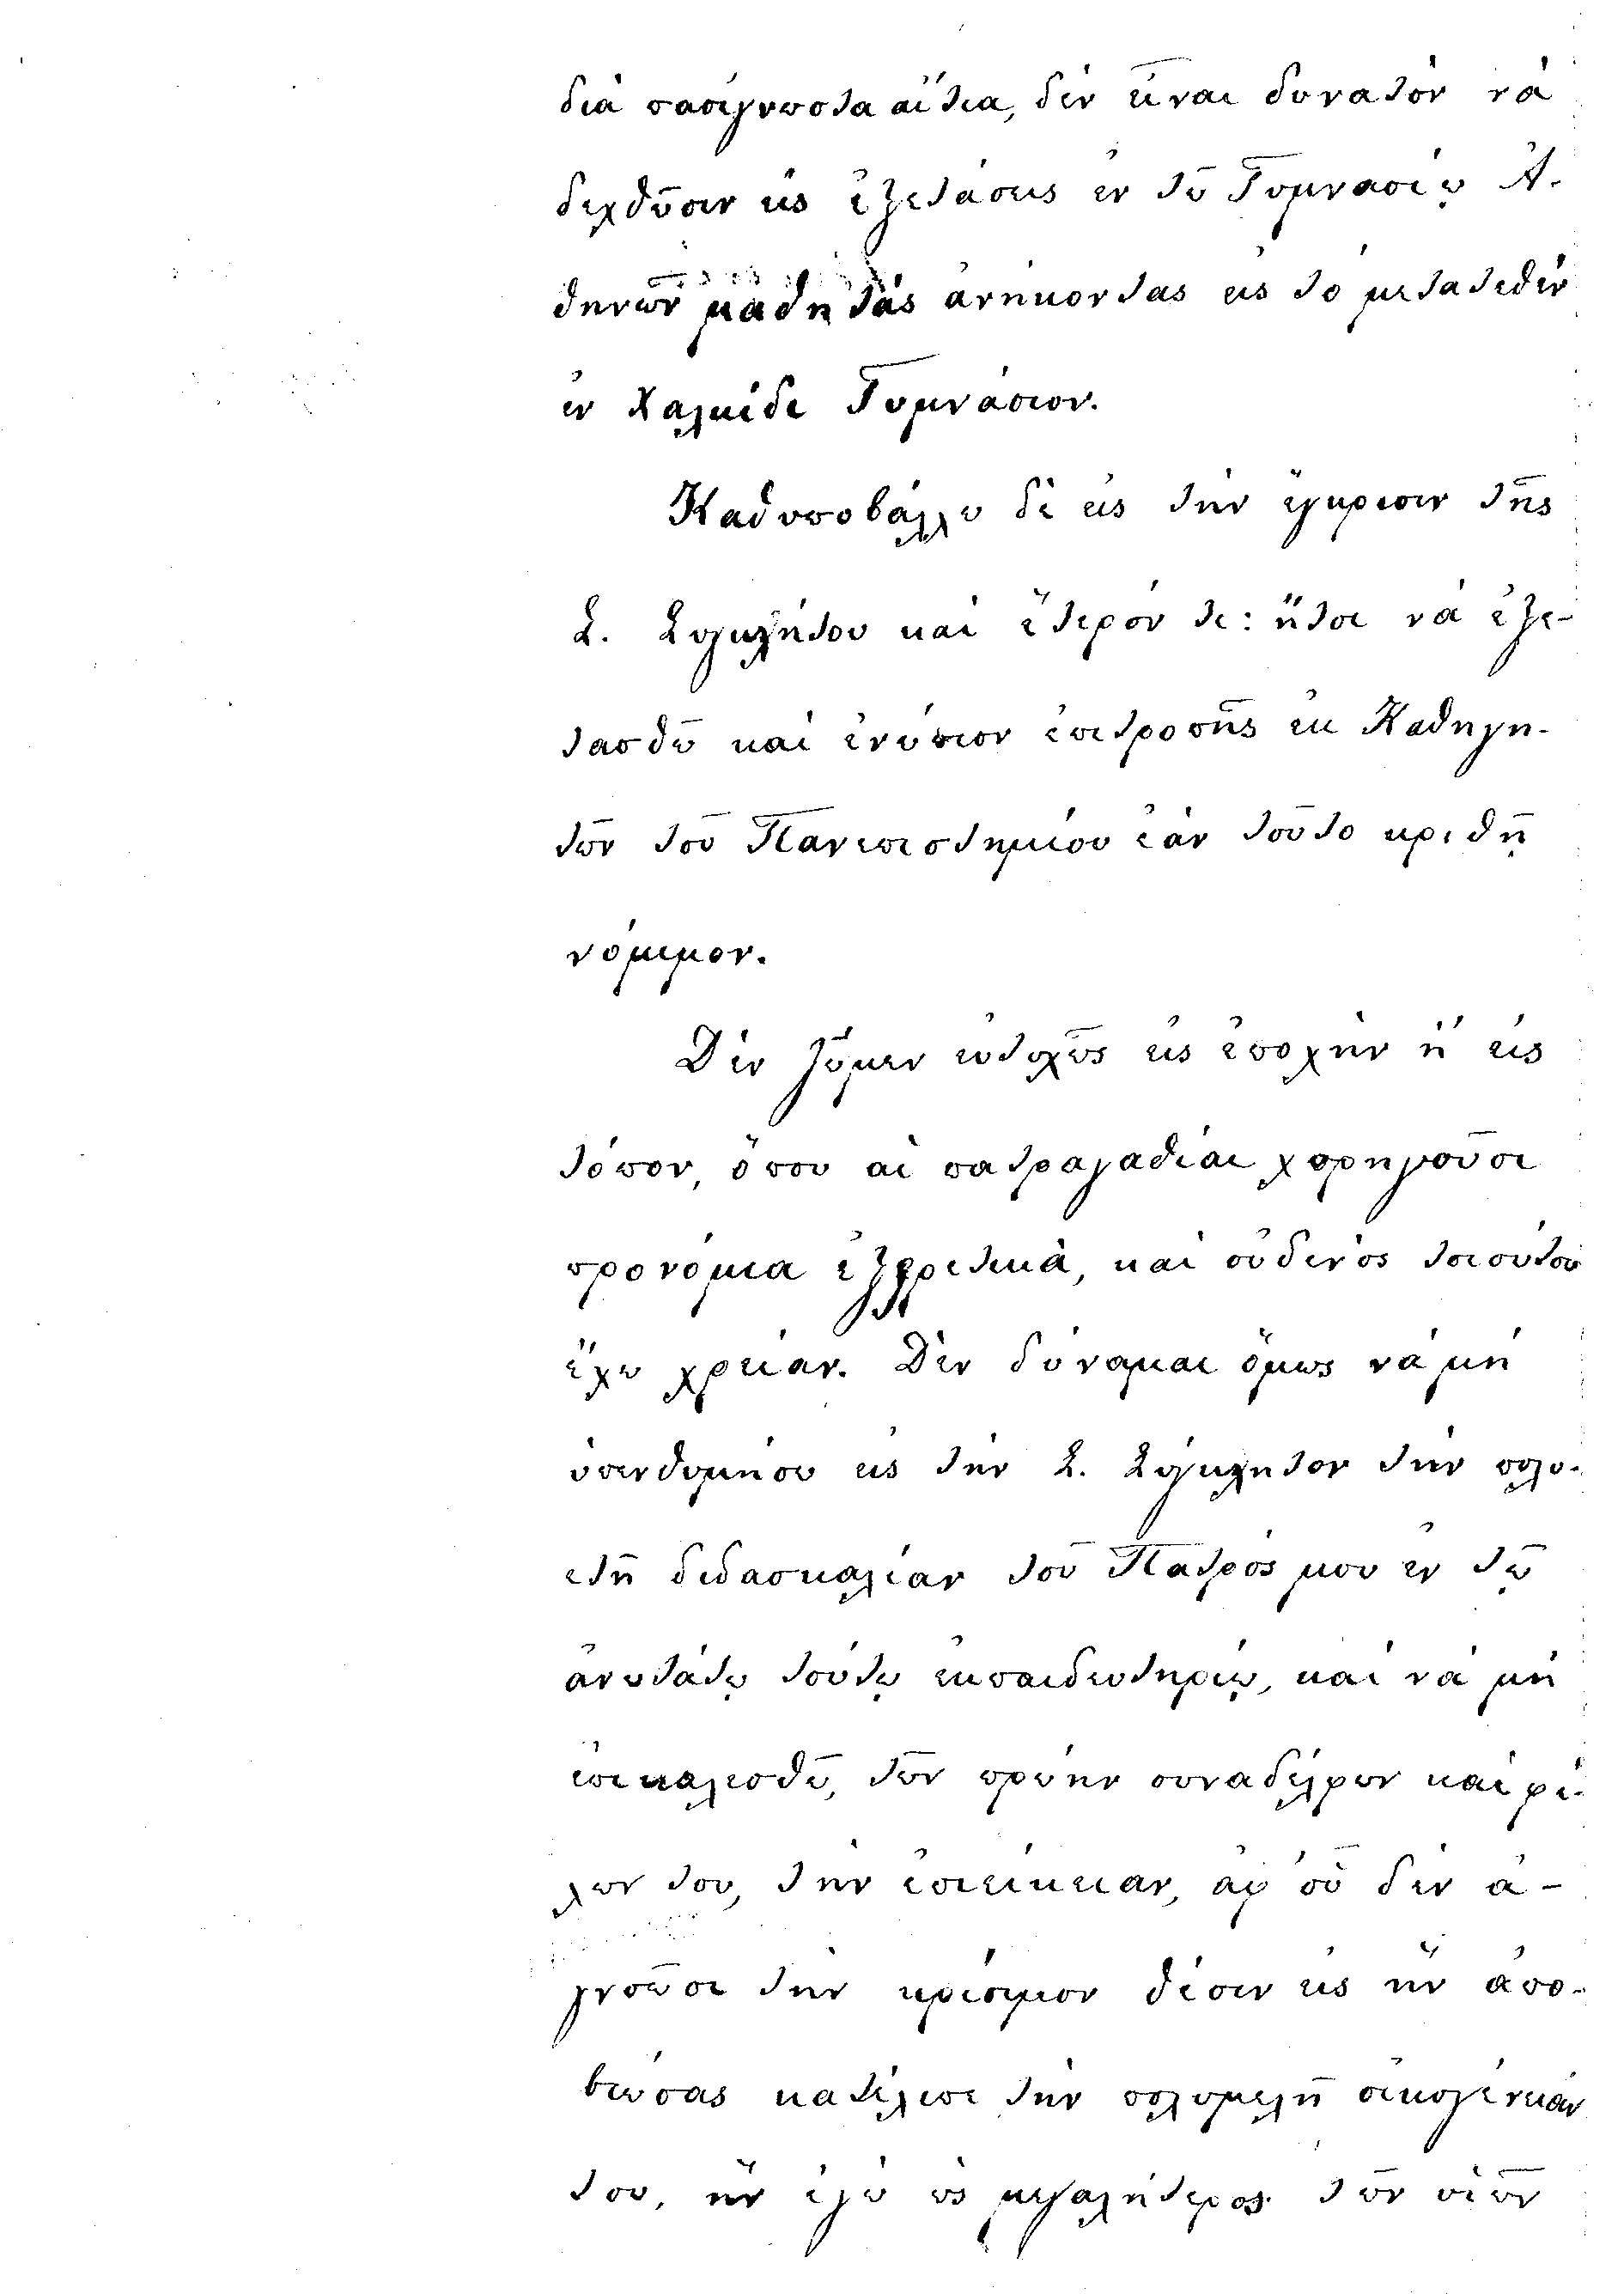 διὰ πασίγνωστα αἴτια, δὲν εἶναι δυνατὸν νὰ
δεχθῶσιν εἰς ἐξετάσεις ἐν τῷ Γυμνασίῳ Ἀ-
θηνῶν μαθητὰς ἀνήκοντας εἰς τὸ μετατεθὲν
ἐν Χαλκίδι Γυμνάσιον.
Καθυποβάλλω δὲ εἰς τὴν ἔγκρισιν τῆς
Σ. Συγκλήτου καὶ ἕτερόν τι: ἤτοι νὰ ἐξε-
τασθῶ καὶ ἐνώπιον ἐπιτροπῆς ἐκ Καθηγη-
τῶν τοῦ Πανεπιστημίου ἐὰν τοῦτο κριθῇ
νόμιμον.
Δὲν ζῶμεν εὐτυχῶς εἰς ἐποχὴν ἢ εἰς
τόπον, ὅπου αἱ πατραγαθίαι χορηγοῦσι
προνόμια ἐξαιρετικὰ, καὶ οὐδενὸς τοιούτου
ἔχω χρείαν. Δὲν δύναμαι ὅμως νὰ μὴ
ὑπενθυμίσω εἰς τὴν Σ. Σύγκλητον τὴν πολυ-
ετῆ διδασκαλίαν τοῦ Πατρός μου ἐν τῷ
ἀνωτάτῳ τούτῳ ἐκπαιδευτηρίῳ, καὶ νὰ μὴ
ἐπικαλεσθῶ, τῶν πρώην συναδέλφων καὶ φί-
λων του, τὴν ἐπιείκειαν, ἀφ' οὗ δὲν ἀ-
γνοοῦσι τὴν κρίσιμον θέσιν εἰς ἣν ἀπο-
βιώσας κατέλιπε τὴν πολυμελῆ οἰκογένειάν
του, ἧς ἐγὼ ὡς μεγαλήτερος τῶν υἱῶν